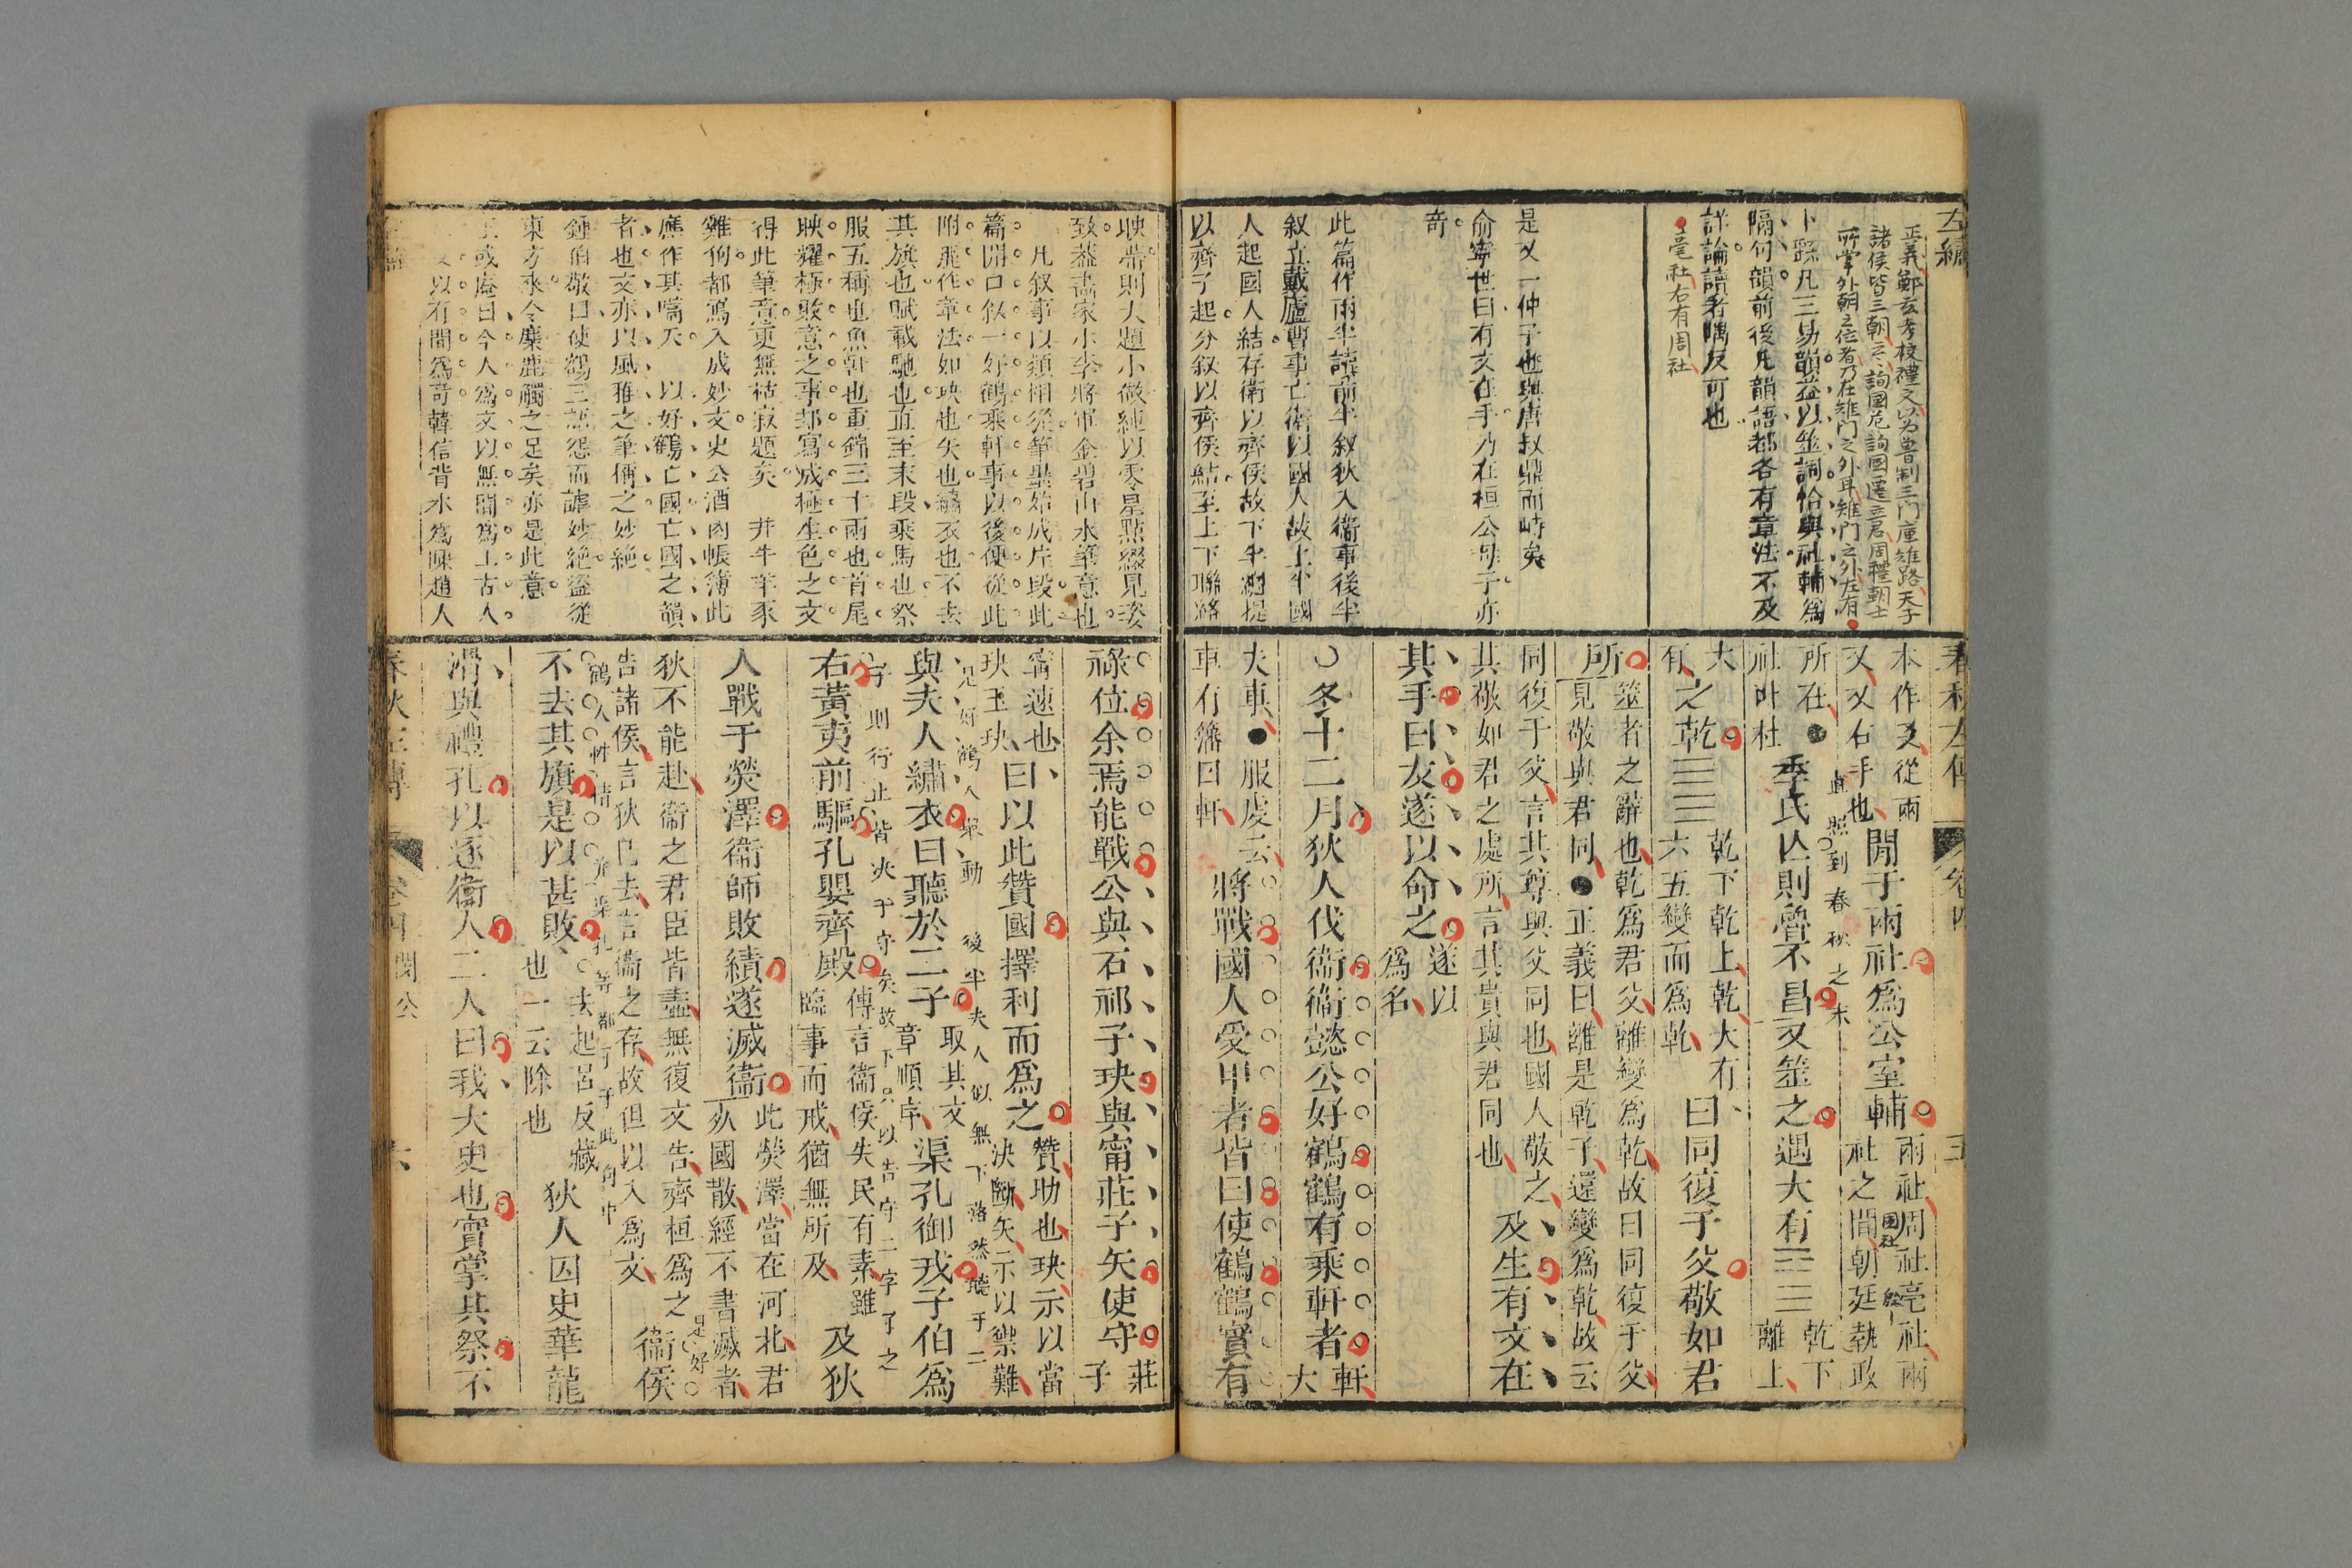 左繡
正義鄭玄考校禮文以为魯制三门庫雉路天子
諸侯皆三朝云詢國危詢國遷立君周禮朝士
所掌外朝之位者乃在雉门之外耳雉门之外左有
卜筮凡三易韻蓋以筮詞恰與社輔爲
隔句韻前後凡韻語都各有章法不及
詳論讀者隅反可也
亳社右有周社
是又一仲子也與唐叔鼎而峙矣
俞寧世曰有文在手乃在桓公母子亦
奇
此篇作兩半讀前半叙狄入衞事後半
叙立戴廬曹事亡衞以國人故上半國
人起國人結存衛以齊侯故下半總提
以齊子起分叙以齊侯結至上下聯絡
春秋左傳
卷四
五
本作又從兩
又又右手也
閒于兩社爲公室輔
兩社周社亳社兩
社之間朝廷執政
所在●
直照到春秋之末
季氏亾則魯不昌又筮之遇大有
乾下
離上
社叶杜
大
有
之乾
乾下乾上乾大有
六五變而爲乾
曰同復于父敬如君
所
筮者之辭也乾爲君父離變爲乾故曰同復于父
見敬與君同●正義曰離是乾子還變爲乾故云
同復于父言其尊與父同也國人敬之
其敬如君之處所言其貴與君同也
及生有文在
其手曰友遂以命之
遂以
爲名
冬十二月狄人伐衞衞懿公好鶴鶴有乘軒者
軒
大
夫車●服虔云
車有藩曰軒
將戰國人受甲者皆曰使鶴鶴實有
映帶則大題小做純以零星點綴見姿
致蓋畫家小李將軍金碧山水筆意也
凡叙事以類相從筆墨始成片段此
篇開口叙一好鶴乘軒事以後便從此
附麗作章法如玦也矢也繡衣也不去
其旗也賦載馳也直至末段乘馬也祭
服五稱也魚軒也重錦三十兩也首尾
映耀極敗意之事却寫成極生色之文
得此筆意更無枯寂題矣 井牛羊豕
雞狗都寫入成妙文史公酒肉帳簿此
應作其嚆矢 以好鶴亡國亡國之韻
者也文亦以風雅之筆稱之妙絶
鍾伯敬曰使鶴三語怨而謔妙絶盜從
東方來令麋鹿觸之足矣亦是此意
王或庵曰今人爲文以無間爲上古人
文以有間爲奇韓信背水爲陳趙人
祿位余焉能戰公與石祁子玦與甯莊子矢使守
莊
子
甯速也
玦玉玦
曰以此贊國擇利而爲之
贊助也玦示以當
決斷矢示以禦難
兄好鶴人舉動 後半夫人似無下落然聽于二
與夫人繡衣曰聽於二子
取其文
章順序
渠孔御戎子伯爲
子則行止皆决于守矣故下只以告守二字了之
右黃夷前驅孔嬰齊殿
傳言衞侯失民有素雖
臨事而戒猶無所及
及狄
人戰于熒澤衞師敗績遂滅衞
此熒澤當在河北君
灰國散經不書滅者
狄不能赴衞之君臣皆盡無復文告齊桓爲之
告諸侯言狄已去言衞之存故但以入爲文
衞侯
不去其旗是以甚敗
去起呂反藏
也一云除也
狄人囚史華龍
滑與禮孔以逐衞人二人曰我大史也實掌其祭不
春秋左傳
卷四閔公
六